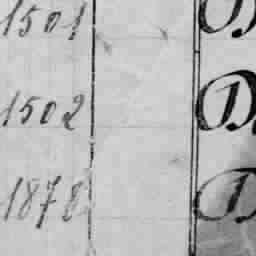 1501 D
1502 D
1878 D